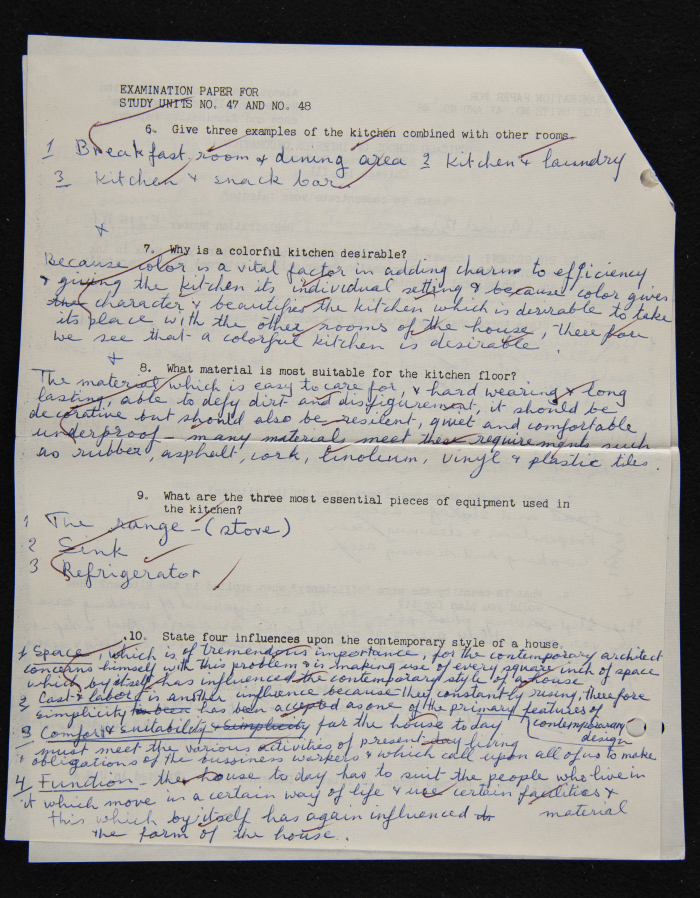 EXAMINATION PAPER FOR
STUDY UNITS NO. 47 AND NO. 48
6. Give three examples of the kitchen combined with other rooms.
1 Breakfast room & dining area 2 kitchen & laundry
3 kitchen & snack bar.
7. Why is a colorful kitchen desirable?
Because color is a vital factor in adding charm to efficiency
& giving the kitchen its individual setting & because color gives
the character & beautifies the kitchen which is desirable to take
its place with the other rooms of the house, therefore
we see that a colorful kitchen is desirable.
8. What material is most suitable for the kitchen floor?
The material which is easy to care for, & hard wearing & long
lasting, able to defy dirt and disfigurement, it should be
decorative but should also be resilent, quiet and comfortable
underproof - many materials meet these requirements such
as rubber, asphalt, cork, linoleum, vinyl & plastic tiles.
9. What are the three most essential pieces of equipment used in
the kitchen?
1 The range - (stove)
2 Sink
3 Refrigerator
10. State four influences upon the contemporary style of a house.
1 Space, which is of tremendous importance, for the contemporary architect
concerns himself with this problem & is making use of every square inch of space
which by itself has influenced the contemporary style of a house.
2 Cost & labor is another influence because they constantly rising, therefore
simplicity to been has been accepted as one of the primary features of
contemporary
design
3 Comfort & suitability & simplicity for the house today
must meet the various activities of present day living
obligations of the bussiness workers & which call upon all of us to make
4 Function - the house to day has to suit the people who live in
it which move in a certain way of life & use certain facilities &
material
this which by itself has again influenced
the form of the house.